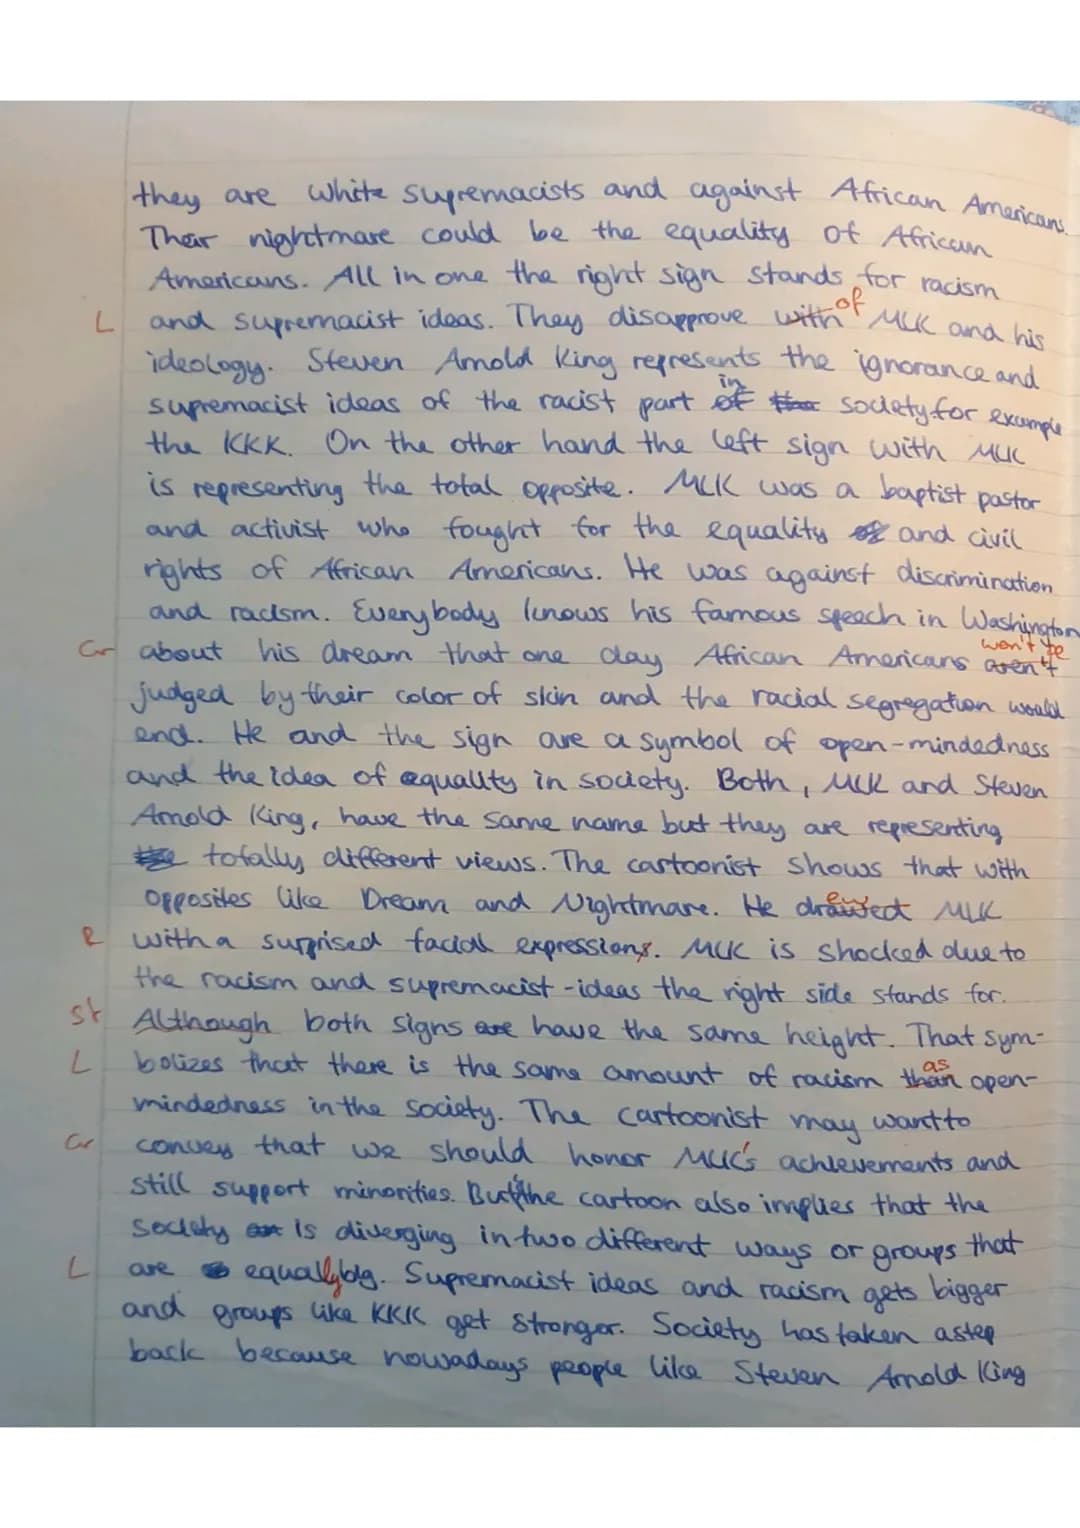 they are white supremacists and against African Americans.
Their nightmare could be the equality of African
Americans. All in one the right sign stands for racism
L and supremacist ideas. They disapprove with of MLK and his
ideology. Steven Arnold King represents the ignorance and
supremacist ideas of the racist part of in the society for example
the KKK. On the other hand the left sign with MLK
is representing the total opposite. MLK was a baptist pastor
and activist who fought for the equality of and civil
rights of African Americans. He was against discrimination
and racism. Everybody knows his famous speech in Washington
Gr about his dream that one day African Americans aren't won't be
judged by their color of skin and the racial segregation would
end. He and the sign are a symbol of open-mindedness
and the idea of equality in society. Both, MLK and Steven
Arnold King, have the same name but they are representing
the totally different views. The cartoonist shows that with
opposites like Dream and Nightmare. He drawed ew MLK
R with a surprised facial expressions. MLK is shocked due to
the racism and supremacist-ideas the right side stands for.
St Although both signs are have the same height. That sym-
L bolizes that there is the same amount of racism than as open-
mindedness in the society. The cartoonist may want to
Gr convey that we should honor MLK's achievements and
still support minorities. But the cartoon also implies that the
society is diverging in two different ways or groups that
L are equally big. Supremacist ideas and racism gets bigger
and groups like KKK get stronger. Society has taken a step
back because nowadays people like Steven Arnold King